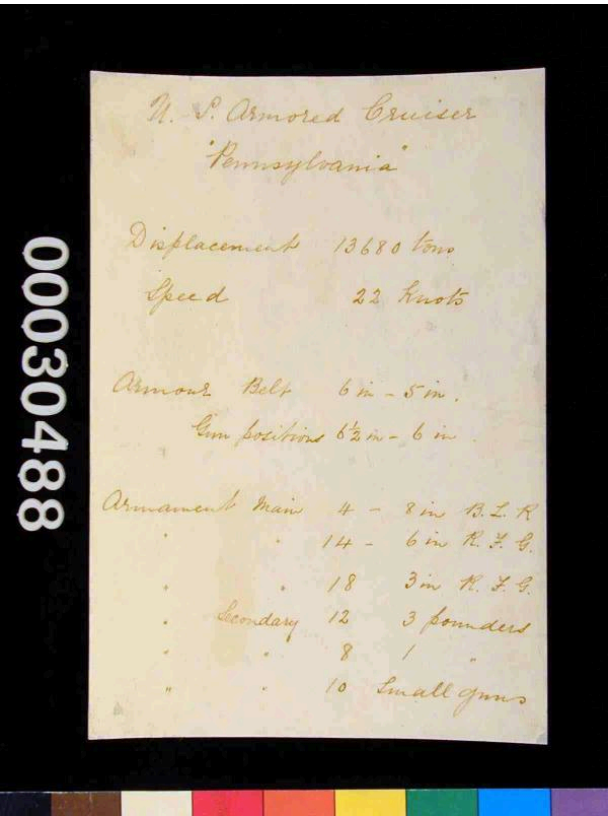 U. S. Armored Cruiser
"Pennsylvania"
Displacement 13680 tons
Speed 22 Knots
Armour Belt 6 in - 5 in.
Gun positions 6½ in - 6 in
Armament Main 4 - 8 in B. L. R
" " 14 - 6 in R. F. G.
" " 18 3 in R. F. G.
" Secondary 12 3 pounders
" " 8 1 "
" " 10 Small guns
00030488